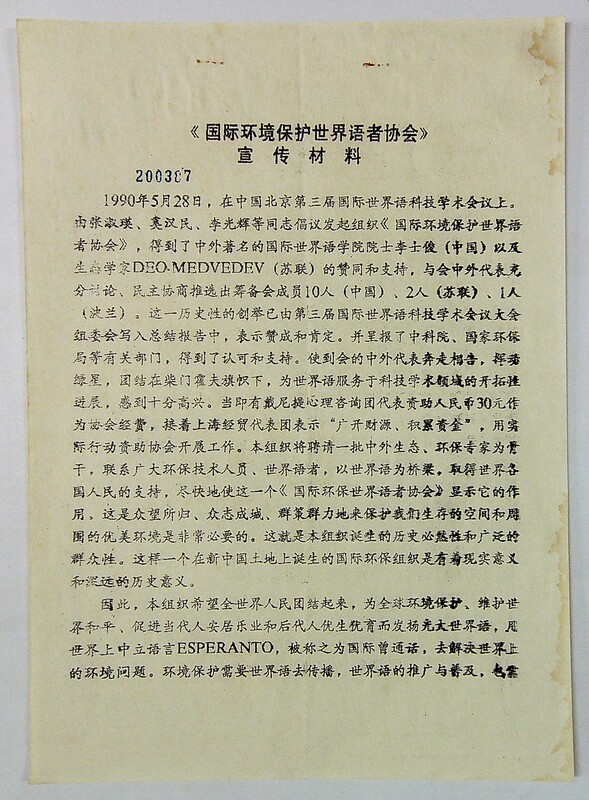 《国际环境保护世界语者协会》
宣传材料
200387
1990年5月28日，在中国北京第三届国际世界语科技学术会议上。
由张淑瑛、奚汉民、李光辉等同志倡议发起组织《国际环境保护世界语
者协会》，得到了中外著名的国际世界语学院院士李士俊（中国）以及
生态学家DEO·MEDVEDEV（苏联）的赞同和支持，与会中外代表充
分讨论、民主协商推选出筹备会成员10人（中国）、2人（苏联）、1人
（波兰）。这一历史性的创举已由第三届国际世界语科技学术会议大会
组委会写入总结报告中，表示赞成和肯定。并呈报了中科院、国家环保
局等有关部门，得到了认可和支持。使到会的中外代表奔走相告，挥动
绿星，团结在柴门霍夫旗帜下，为世界语服务于科技学术领域的开拓性
进展，感到十分高兴。当即有戴尼提心理咨询团代表资助人民币30元作
为协会经营，接着上海经贸代表团表示“广开财源、积累资金”，用实
际行动资助协会开展工作。本组织将聘请一批中外生态、环保专家为骨
干，联系广大环保技术人员、世界语者，以世界语为桥梁。取得世界各
国人民的支持，尽快地使这一个《国际环保世界语者协会》显示它的作
用。这是众望所归、众志成城、群策群力地来保护我们生存的空间和周
围的优美环境是非常必要的。这就是本组织诞生的历史必然性和广泛的
群众性。这样一个在新中国土地上诞生的国际环保组织是有着现实意义
和深远的历史意义。
因此，本组织希望全世界人民团结起来，为全球环境保护、维护世
界和平、促进当代人安居乐业和后代人优生优育而发扬光大世界语，用
世界上中立语言ESPERANTO，被称之为国际普通话，去解决世界上
的环境问题。环境保护需要世界语去传播，世界语的推广与普及，也需